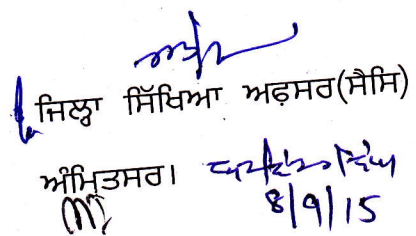 ਜਿਲ੍ਹਾ ਸਿੱਖਿਆ ਅਫ਼ਸਰ(ਸੈਸਿ)
ਅੰਮ੍ਰਿਤਸਰ।
8/9/15